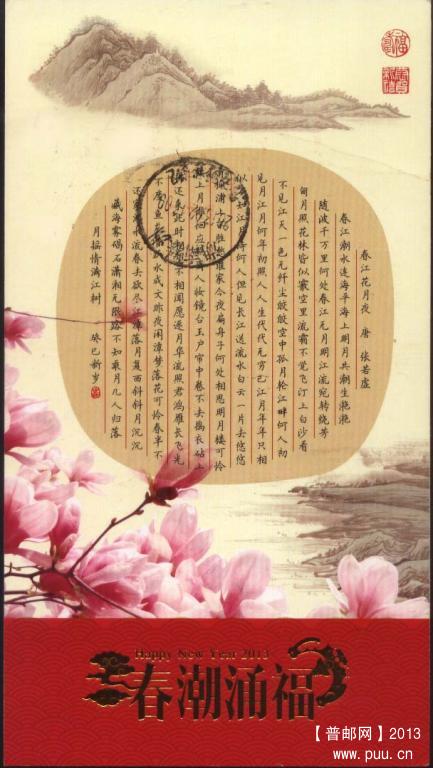 春江花月夜 唐 张若虚
春江潮水连海平海上明月共潮生滟滟
随波千万里何处春江无月明江流宛转绕芳
甸月照花林皆似霰空里流霜不觉飞汀上白沙看
不见江天一色无纤尘皎皎空中孤月轮江畔何人初
见月江月何年初照人人生代代无穷已江月年年只相
似 江 待何人但见长江送流水白云一片去悠悠
枫浦上 胜愁谁家今夜扁舟子何处相思明月楼可怜
楼上月徘徊应照离人妆镜台玉户帘中卷不去捣衣砧上
还来此时相 不相闻愿逐月华流照君鸿雁长飞光
不度鱼 水成文昨夜闲潭梦落花可怜春半不
还家 水流春去欲尽江潭落月复西斜斜月沉沉
藏海雾碣石潇湘无限路不知乘月几人归落
月摇情满江树 癸巳新岁
Happy New Year 2013
春潮涌福
【普邮网】2013
www.puu.cn